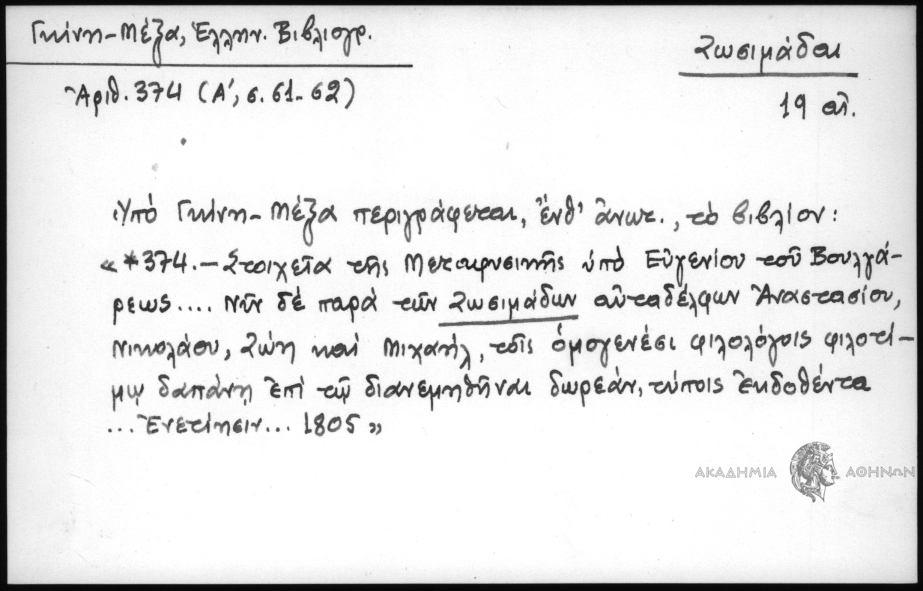 Γκίνη-Μέξα, Ἑλλην. Βιβλιογρ.
Ζωσιμάδαι
Ἀριθ. 374 (Α', σ. 61-62)
19 αἰ.
Ὑπό Γκίνη-Μέξα περιγράφεται, ἔνθ' ἄνωτ., τό βιβλίον:
«*374.- Στοιχεῖα τῆς Μεταφυσικῆς ὑπό Εὐγενίου τοῦ Βουλγά-
ρεως.... Νῦν δέ παρά τῶν Ζωσιμάδων αὐταδέλφων Ἀναστασίου,
Νικολάου, Ζώη καί Μιχαήλ, τοῖς ὁμογενέσι φιλολόγοις φιλοτί-
μῳ δαπάνῃ ἐπί τῷ διανεμηθῆναι δωρεάν, τύποις ἐκδοθέντα
... Ἐνετίησιν... 1805»
ΑΚΑΔΗΜΙΑ ΑΘΗΝΩΝ